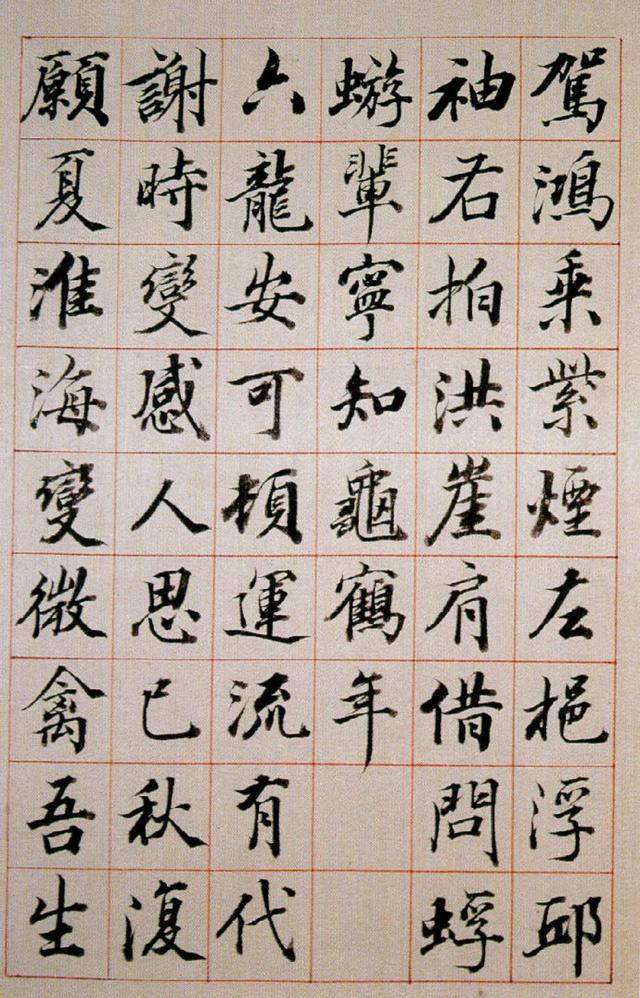 駕鴻乘紫煙左挹浮邱
袖右拍洪崖肩借問蜉
蝣輩寧知龜鶴年
六龍安可頓運流有代
謝時變感人思已秋復
願夏淮海變微禽吾生